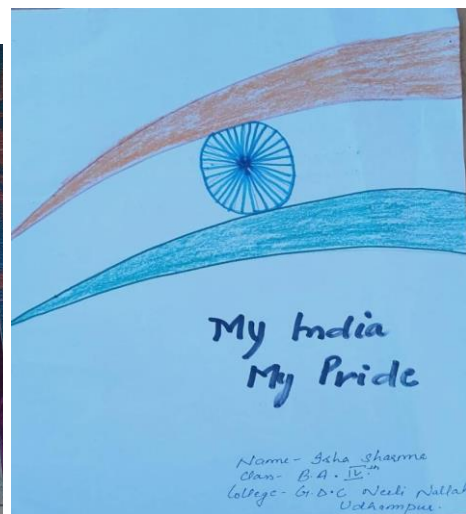 My India
My Pride
Name- Isha Sharma
Class- B.A. IVth
College- G.D.C Neeli Nallah
Udhampur.